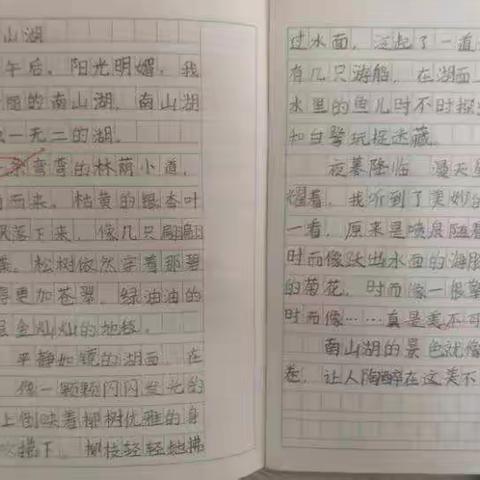 山湖
午后，阳光明媚，我
丽的南山湖，南山湖
一无二的湖。
弯弯的林荫小道，
而来。枯黄的银杏叶
飘落下来，像几只翩翩
松树依然穿着那碧
得更加苍翠，绿油油的
金灿灿的地毯。
平静如镜的湖面，在
像一颗颗闪闪发光的
上倒映着柳树优雅的身
拂下，柳枝轻轻地拂
过水面，泛起了一道
有几只游船，在湖面
水里的鱼儿时不时探
知白鹭玩捉迷藏。
夜幕降临，漫天星
耀着，我听到了美妙的
一看，原来是喷泉随着
时而像跃出水面的海豚
的菊花，时而像一根擎
时而像……真是美不可
南山湖的景色就像
卷，让人陶醉在这美不